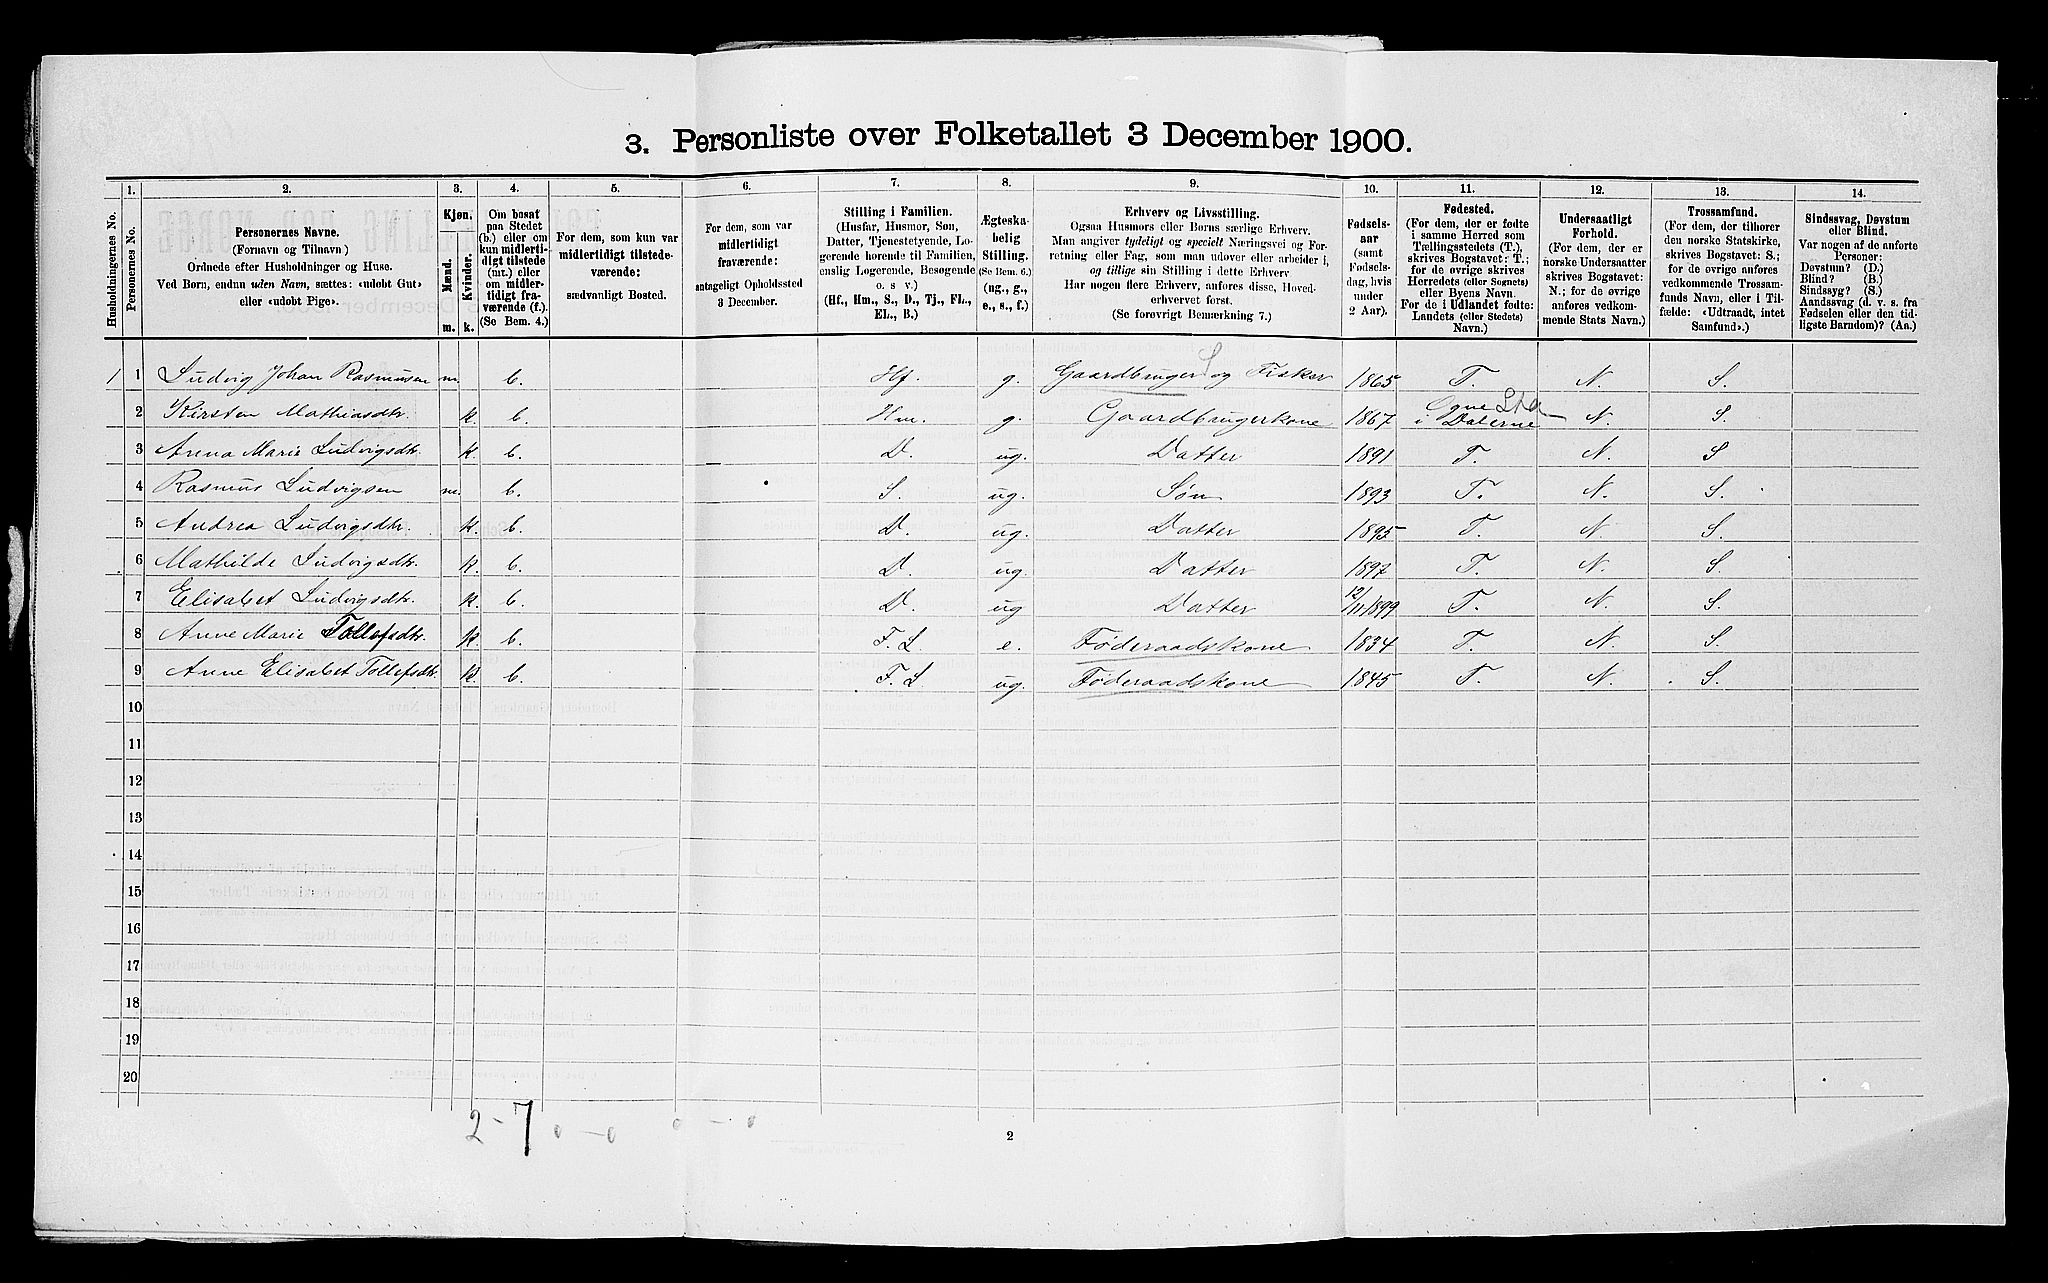 3. Personliste over Folketallet 3 December 1900.
1. 2. 3. 4. 5. 6. 7. 8. 9. 10. 11. 12. 13. 14.
Husholdningernes No.
Personernes No.
Personernes Navne.
(Fornavn og Tilnavn)
Ordnede efter Husholdninger og Huse.
Ved Børn, endnu uden Navn, sættes: «udøbt Gut»
eller «udøbt Pige».
Kjøn.
Mænd.
Kvinder.
m. k.
Om bosat
paa Stedet
(b.) eller om
kun midlerti-
digt tilstede
(mt.) eller
om midler-
tidigt fra-
værende (f.).
(Se Bem. 4.)
For dem, som kun var
midlertidigt tilstede-
værende:
sædvanligt Bosted.
For dem, som var
midlertidigt
fraværende:
antageligt Opholdssted
3 December.
Stilling i Familien.
(Husfar, Husmor, Søn,
Datter, Tjenestetyende, Lo-
gerende hørende til Familien,
enslig Logerende, Besøgende
o. s v.)
(Hf., Hm., S., D., Tj., FL.,
EL., B.)
Ægteska-
belig
Stilling.
(Se Bem. 6.)
(ug., g.,
e., s., f.)
Erhverv og Livsstilling.
Ogsaa Husmors eller Børns særlige Erhverv.
Man angiver tydeligt og specielt Næringsvei og For-
retning eller Fag, som man udøver eller arbeider i,
og tillige sin Stilling i dette Erhverv
Har nogen flere Erhverv, anføres disse, Hoved-
erhvervet først.
(Se forøvrigt Bemærkning 7.)
Fødsels-
aar
(samt
Fødsels-
dag, hvis
under
2 Aar).
Fødested.
(For dem, der er fødte
i samme Herred som
Tællingsstedets (T.),
skrives Bogstavet: T.;
for de øvrige skrives
Herredets (eller Sognets)
eller Byens Navn.
For de i Udlandet fødte:
Landets (eller Stedets)
Navn.)
Undersaatligt
Forhold.
(For dem, der er
norske Undersaatter
skrives Bogstavet:
N.; for de øvrige
anføres vedkom-
mende Stats Navn.)
Trossamfund.
(For dem, der tilhører
den norske Statskirke,
skrives Bogstavet: S.;
for de øvrige anføres
vedkommende Trossam-
funds Navn, eller i Til-
fælde: «Udtraadt, intet
Samfund».)
Sindssvag, Døvstum
eller Blind.
Var nogen af de anførte
Personer:
Døvstum? (D.)
Blind? (B.)
Sindssyg? (S.)
Aandssvag (d. v. s. fra
Fødselen eller den tid-
ligste Barndom)? (Aa.)
1 1 Ludvig Johan Rasmusen m. b. Hf. g. Gaardbruger og Fisker 1865 T. N. S.
2 Kirsten Mathiasdtr. k. b. Hm. g. Gaardbrugerkone 1867 Ogne i Dalerne N. S.
3 Anna Marie Ludvigsdtr. k. b. D. ug. Datter 1891 T. N. S
4 Rasmus Ludvigsen m. b. S. ug. Søn 1893 T. N. S.
5 Andrea Ludvigsdtr. k. b. D. ug. Datter 1895 T. N. S.
6 Mathilde Ludvigsdtr. k. b. D. ug. Datter 1897 T. N. S.
7 Elisabet Ludvigsdtr. k. b. D. ug Datter 12/11 1899 T. N. S.
8 Anne Marie Tollefsdtr. k. b. F. L e. Føderaadskone 1834 T. N. S.
9 Anne Elisabet Tollefsdtr. k. b. F. L ug. Føderaadskone 1845 T. N. S.
10
11
12
13
14
15
16
17
18
19
20
2-7 0-0 0-0
2